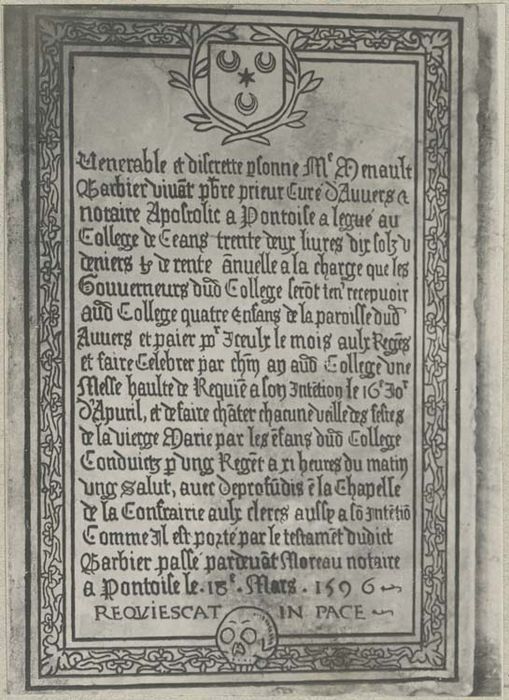 Venerable et discrette psonne Mᵉ Menault
Barbier vivāt pb̄re prieur Curé d'Auvers &
notaire Apostolic a Pontoise a legué au
College de Ceans trente deux livres dix solz v
deniers tz de rente ānuelle a la charge que les
Gouverneurs dud̄ College serōt ten' recepuoir
aud̄ College quatre Enfans de la paroisse dud̄
Auvers et paier pʳ Iceulx le mois aulx Regēs
et faire Celebrer par chūn an aud̄ College vne
Messe haulte de Requiē a son Intētion le 16ᵉ Joʳ
d'Apuril, et de faire chāter chacune veille des festes
de la vierge Marie par les ēfans dud̄ College
Conduictz p vng Regēt a xi heures du matin
vng Salut, avec Deprofūdis ē la Chapelle
de la Confrairie aulx clercs aussy a sō Intētiō
Comme Il est porté par le testamēt dudict
Barbier passé pardeuāt Moreau notaire
a Pontoise le . 18ᵉ . Mars . 1596
REQVIESCAT IN PACE